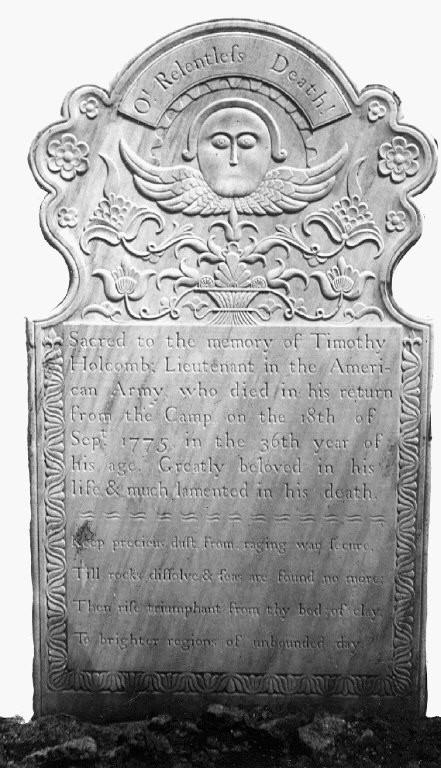 O! Relentleſs Death!
Sacred to the memory of Timothy
Holcomb; Lieutenant in the Ameri-
can Army, who died in his return
from the Camp on the 18th of
Sept 1775, in the 36th year of
his age. Greatly beloved in his
life, & much lamented in his death.
Keep precious dust from raging war ſecure,
Till rocks diſſolve & ſeas are found no more;
Then riſe triumphant from thy bed of clay,
To brighter regions of unbounded day.